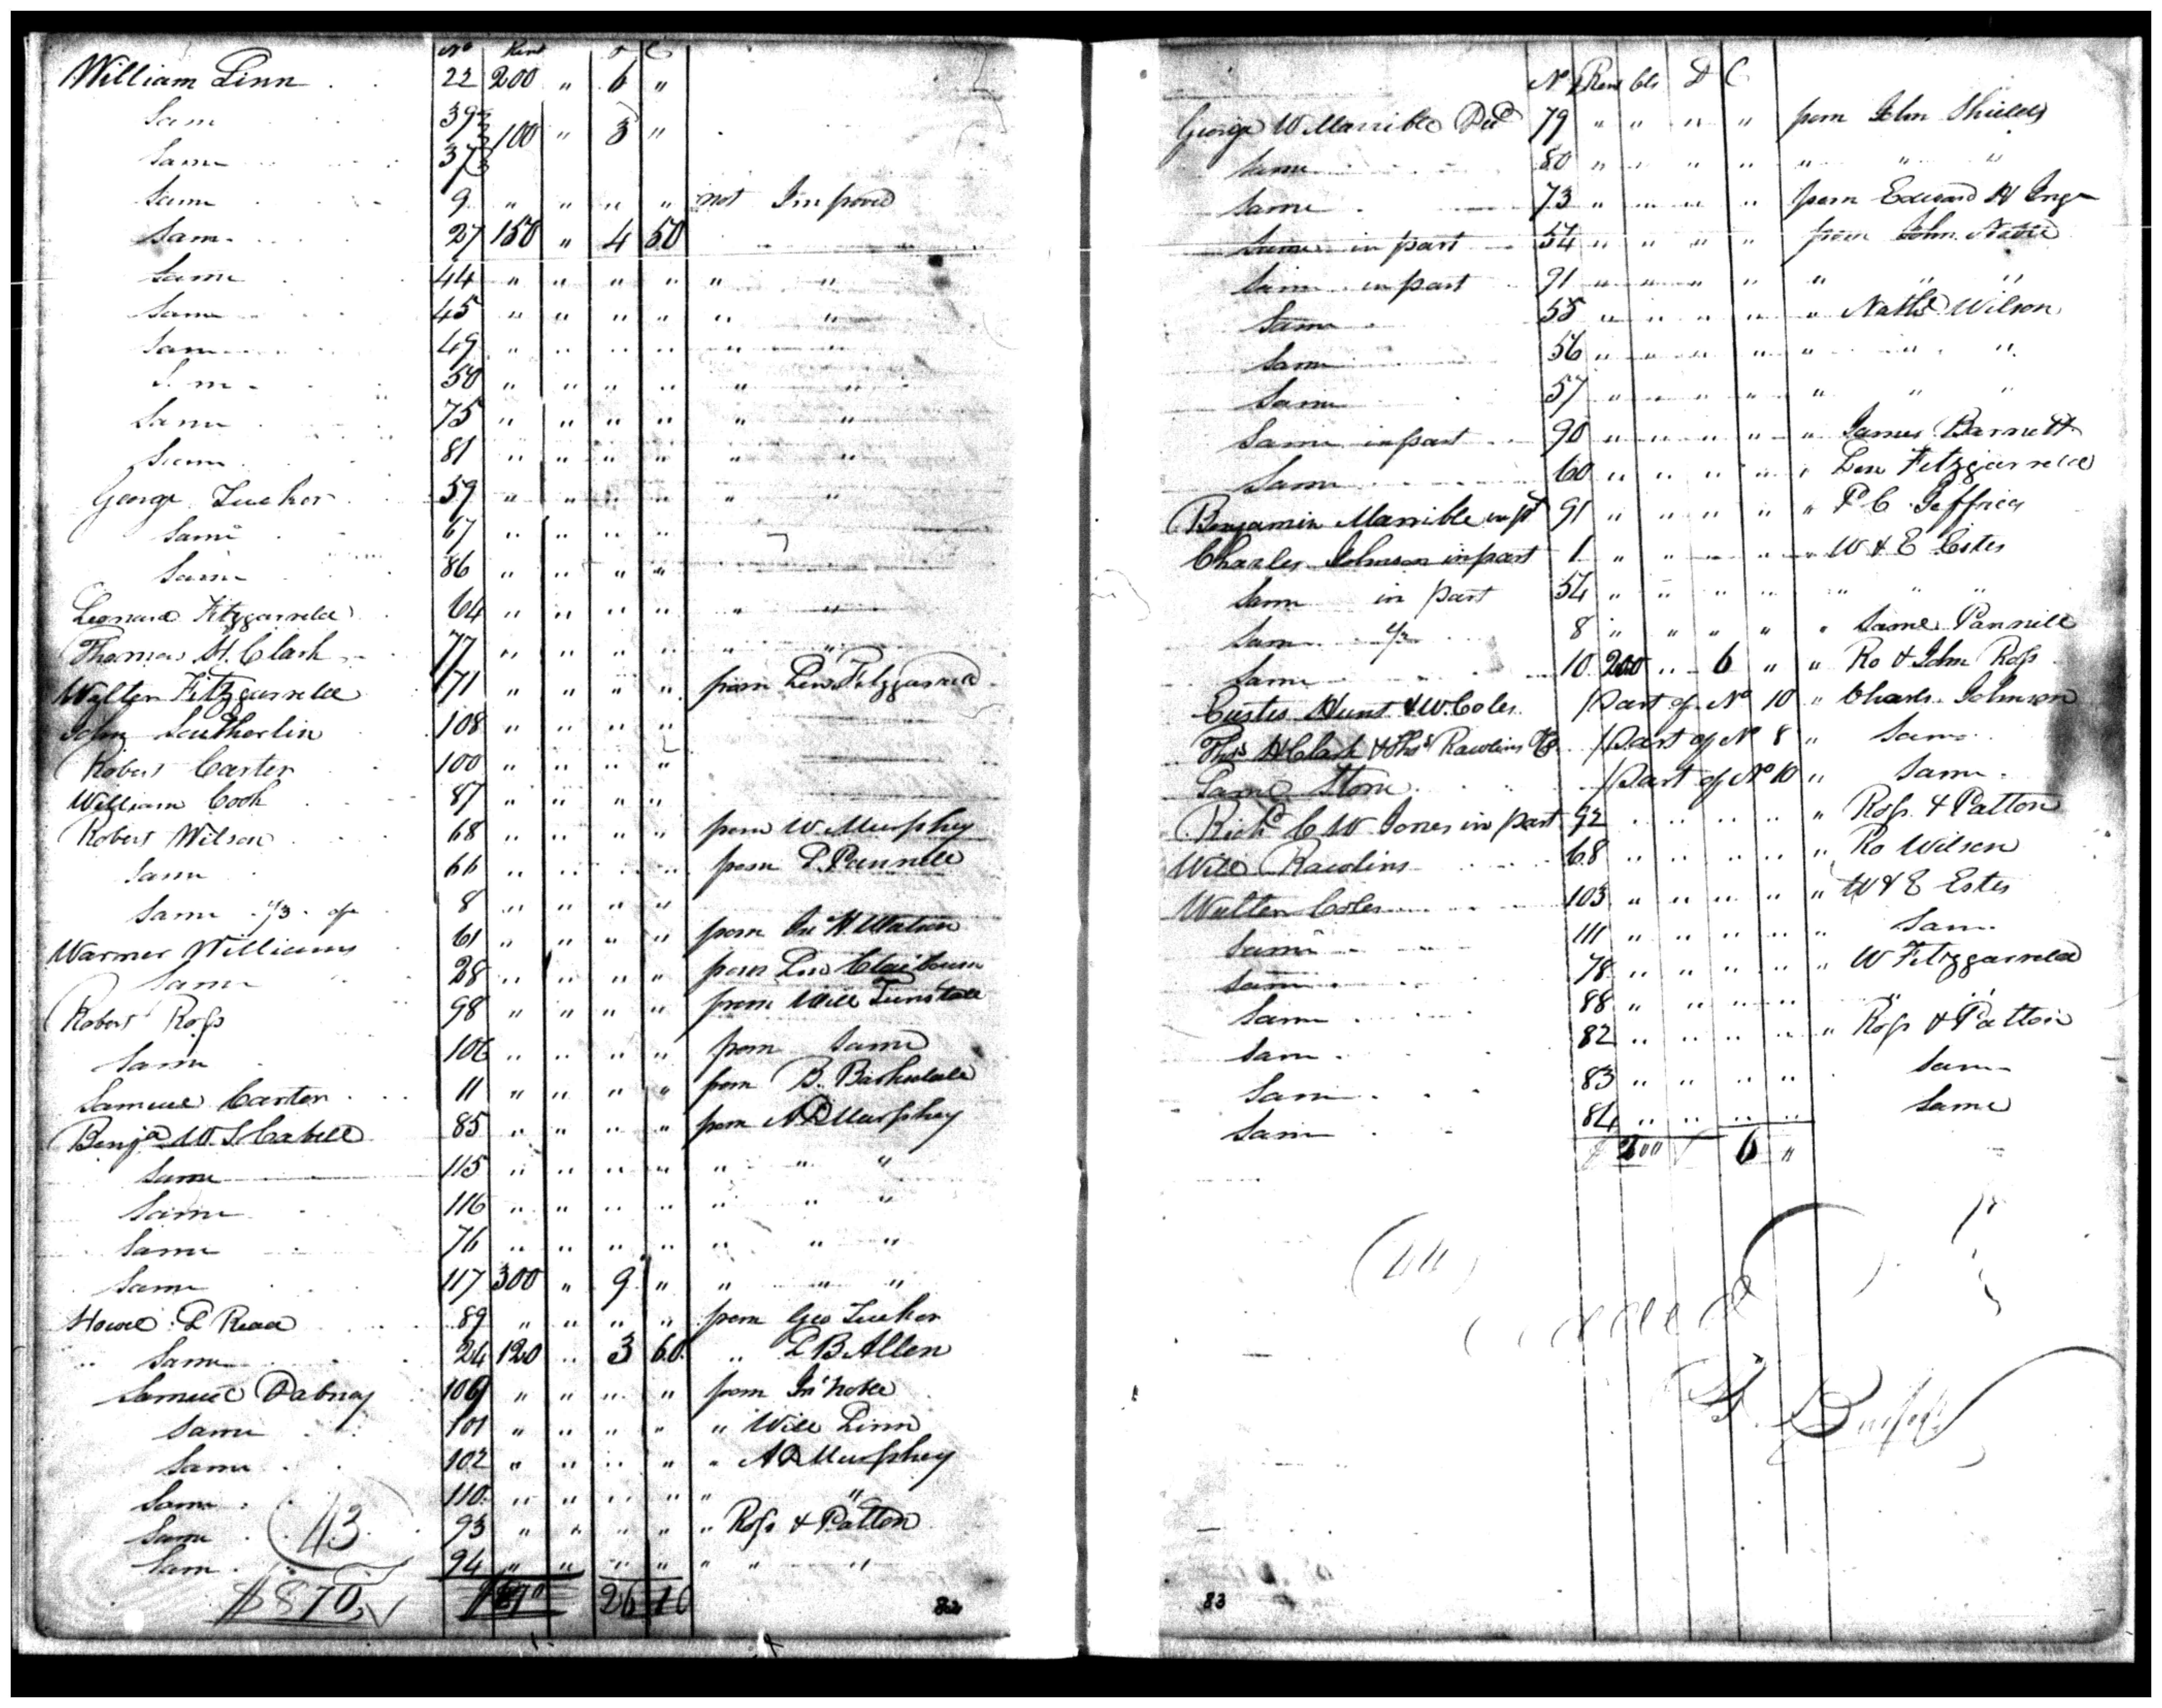 No Rent D C
William Linn 22 200 " 6 "
Same 39 2/3 100 " 3 "
Same 37 2/3
Same 9 " " " " not Improved
Same 27 150 " 4 50
Same 44 " " " " " "
Same 45 " " " " " "
Same 49 " " " " " "
Same 50 " " " " " "
Same 75 " " " " " "
Same 81 " " " " " "
George Tucker 59 " " " " " "
Same 67 " " " "
Same 86 " " " "
Leonard Fitzgarreld 64 " " " " " "
Thomas H. Clark 77 " " " " " "
Walter Fitzgarreld 71 " " " " from Len Fitzgarreld
John Sutherlin 108 " " " "
Robert Carter 100 " " " "
William Cook 87 " " " "
Robert Wilson 68 " " " " from W. Murphey
Same 66 " " " " from D. Pannill
Same 1/3 of 8 " " " "
Warner Williams 61 " " " " from Jn H. Watson
Same 28 " " " " from Leo Claibourn
Robert Ross 98 " " " " from Will Tunstall
Same 106 " " " " from Same
Samuel Carter 11 " " " " from B. Barksdale
Benja W. S. Cabell 85 " " " " from A D Murphey
Same 115 " " " " " " "
Same 116 " " " " " " "
Same 76 " " " " " " "
Same 117 300 " 9 " " " "
Howel L Read 89 " " " " from Geo Tucker
Same 24 120 " 3 60 " L B Allen
Samuel Dabney 109 " " " " from Jno Noble
Same 101 " " " " " Will Linn
Same 102 " " " " " A D Murphey
Same 110 " " " " " "
Same 93 " " " " " Ross & Patton
Same 94 " " " " " " "
43
$870 870 26 10
82
No Rent Cts D C
George W Marrible Decd 79 " " " " from John Shields
Same 80 " " " " " " "
Same 73 " " " " from Edward H Inge
Same in part 54 " " " " from John Noble
Same in part 91 " " " " " " "
Same 55 " " " " " Nathl Wilson
Same 56 " " " " " " "
Same 57 " " " " " " "
Same in part 90 " " " " " James Barnett
Same 60 " " " " " Len Fitzgarreld
Benjamin Marrible in pt 91 " " " " " P C Jeffries
Charles Johnson in part 1 " " " " " W & E Estes
Same in part 54 " " " " " " "
Same 1/2 8 " " " " " Saml Pannill
Same 10 200 " 6 " " Ro & John Ross
Custis Hunt & W Coles Part of No 10 " Charls Johnson
Thos H Clark & Thos Rawlins Part of No 8 " Same
Saml Stone Part of No 10 " Same
Richd C W Jones in part 92 " " " " " Ross & Patton
Will Rawlins 68 " " " " " Ro Wilson
Walter Coles 103 " " " " " W & E Estes
Same 111 " " " " " Same
Same 78 " " " " " W Fitzgarreld
Same 88 " " " " " "
Same 82 " " " " " Ross & Patton
Same 83 " " " " Same
Same 84 " " " " Same
$ 200 6 "
83